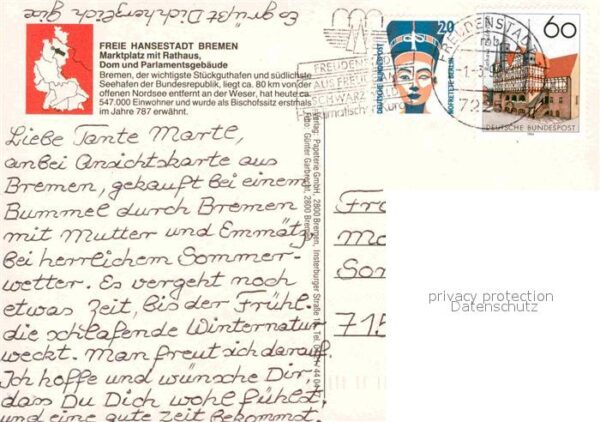 Es grüßt Dich herzlich
FREIE HANSESTADT BREMEN
Marktplatz mit Rathaus,
Dom und Parlamentsgebäude
Bremen, der wichtigste Stückguthafen und südlichste
Seehafen der Bundesrepublik, liegt ca. 80 km von der
offenen Nordsee entfernt an der Weser, hat heute ca.
547.000 Einwohner und wurde als Bischofssitz erstmals
im Jahre 787 erwähnt.
Liebe Tante Martl,
anbei Ansichtskarte aus
Bremen, gekauft bei einem
Bummel durch Bremen
mit Mutter und Emmätz
bei herrlichem Sommer-
wetter. Es vergeht noch
etwas Zeit, bis der Frühl.
die schlafende Winternatur
weckt. Man freut sich darauf.
Ich hoffe und wünsche Dir,
dass Du Dich wohl fühlst,
und eine gute Zeit bekommst.
Verlag: Papeterie GmbH, 2800 Bremen, Insterburger Straße
Foto: Günter Garbrecht, 2800 Bremen
FREUDENSTADT
SCHWARZ
20
DEUTSCHE BUNDESPOST
FREUDENSTADT
60
DEUTSCHE BUNDESPOST
Fra
Ma
Son
715
privacy protection
Datenschutz